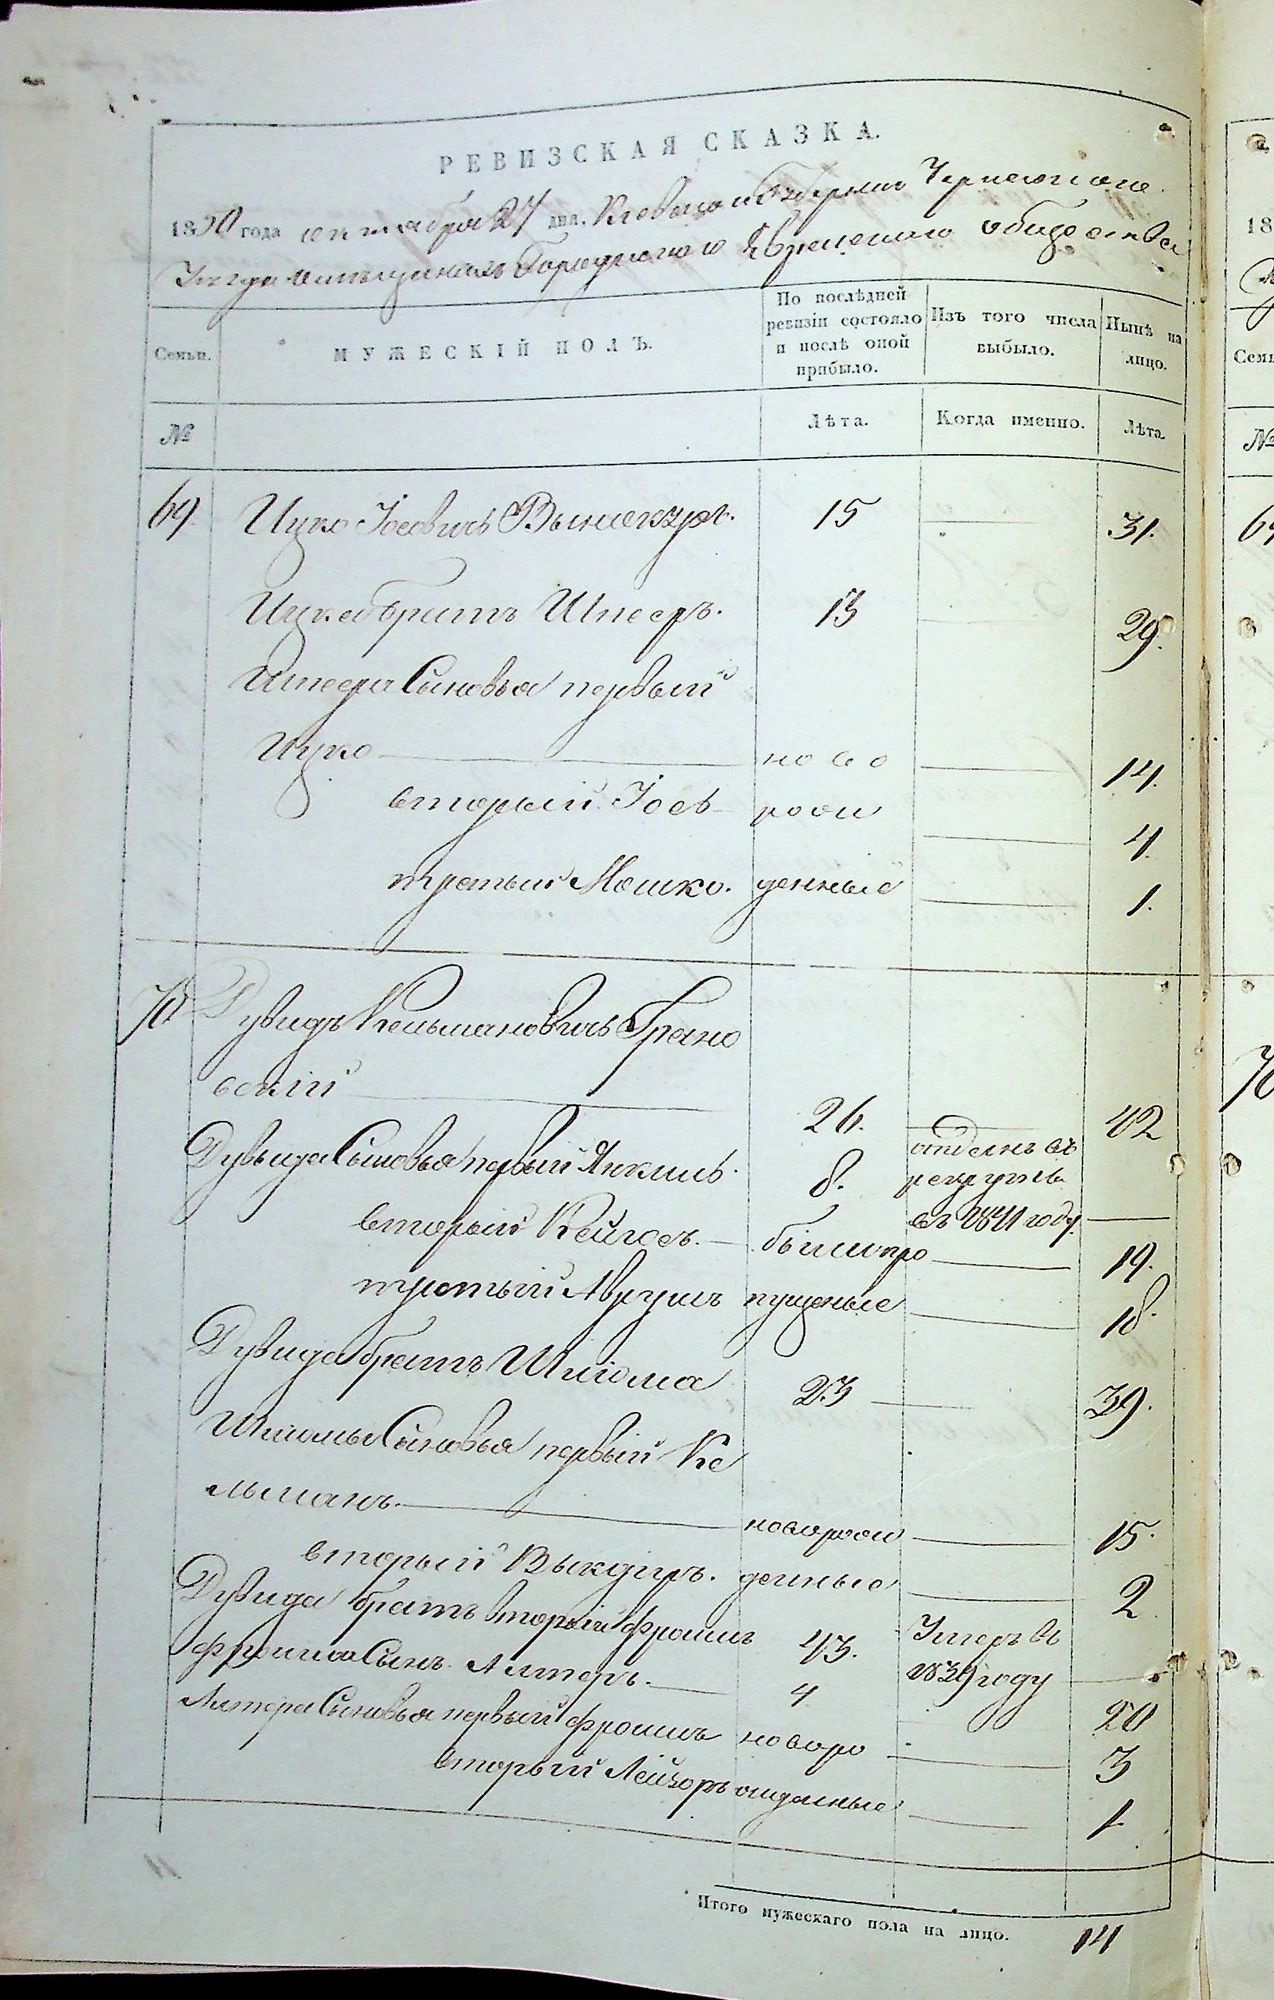 РЕВИЗСКАЯ СКАЗКА.
1850 года октября 27 дня. Киевской Губернии
Уезда Еврейского общества
Семьи.
МУЖЕСКІЙ ПОЛЪ.
По послѣдней ревизіи состояло и послѣ оной прибыло.
Изъ того числа выбыло.
Нынѣ на лицо.
№
Лѣта.
Когда именно.
Лѣта.
69. Ицко Іосевичъ 15 31.
Ицка братъ Шмееръ. 13 29.
Шмеера Сыновья первый
Ицко ново 14.
вторый Іосъ рож 4.
третій Мошко. денные 1.
70 Дувидъ Кельмановичъ Грано
вскій 26. 42
Дувида Сыновья первый Янкель. 8. отданъ въ рекруты въ 1841 году.
вторый были про 19.
третій Аврумъ пущеные 18.
Дувида братъ Шлёма 23 39.
Шлёмы Сыновья первый Ке
льманъ. новорож 15.
вторый денные 2
Дувида братъ вторый Фроимъ 43. Умеръ въ 1839 году
Фроима Сынъ Алтеръ. 4 20
Алтера Сыновья первый Фроимъ новоро 3
вторый Лейзоръ жденные 1
Итого мужескаго пола на лицо. 14
18
Семь
№
69
70